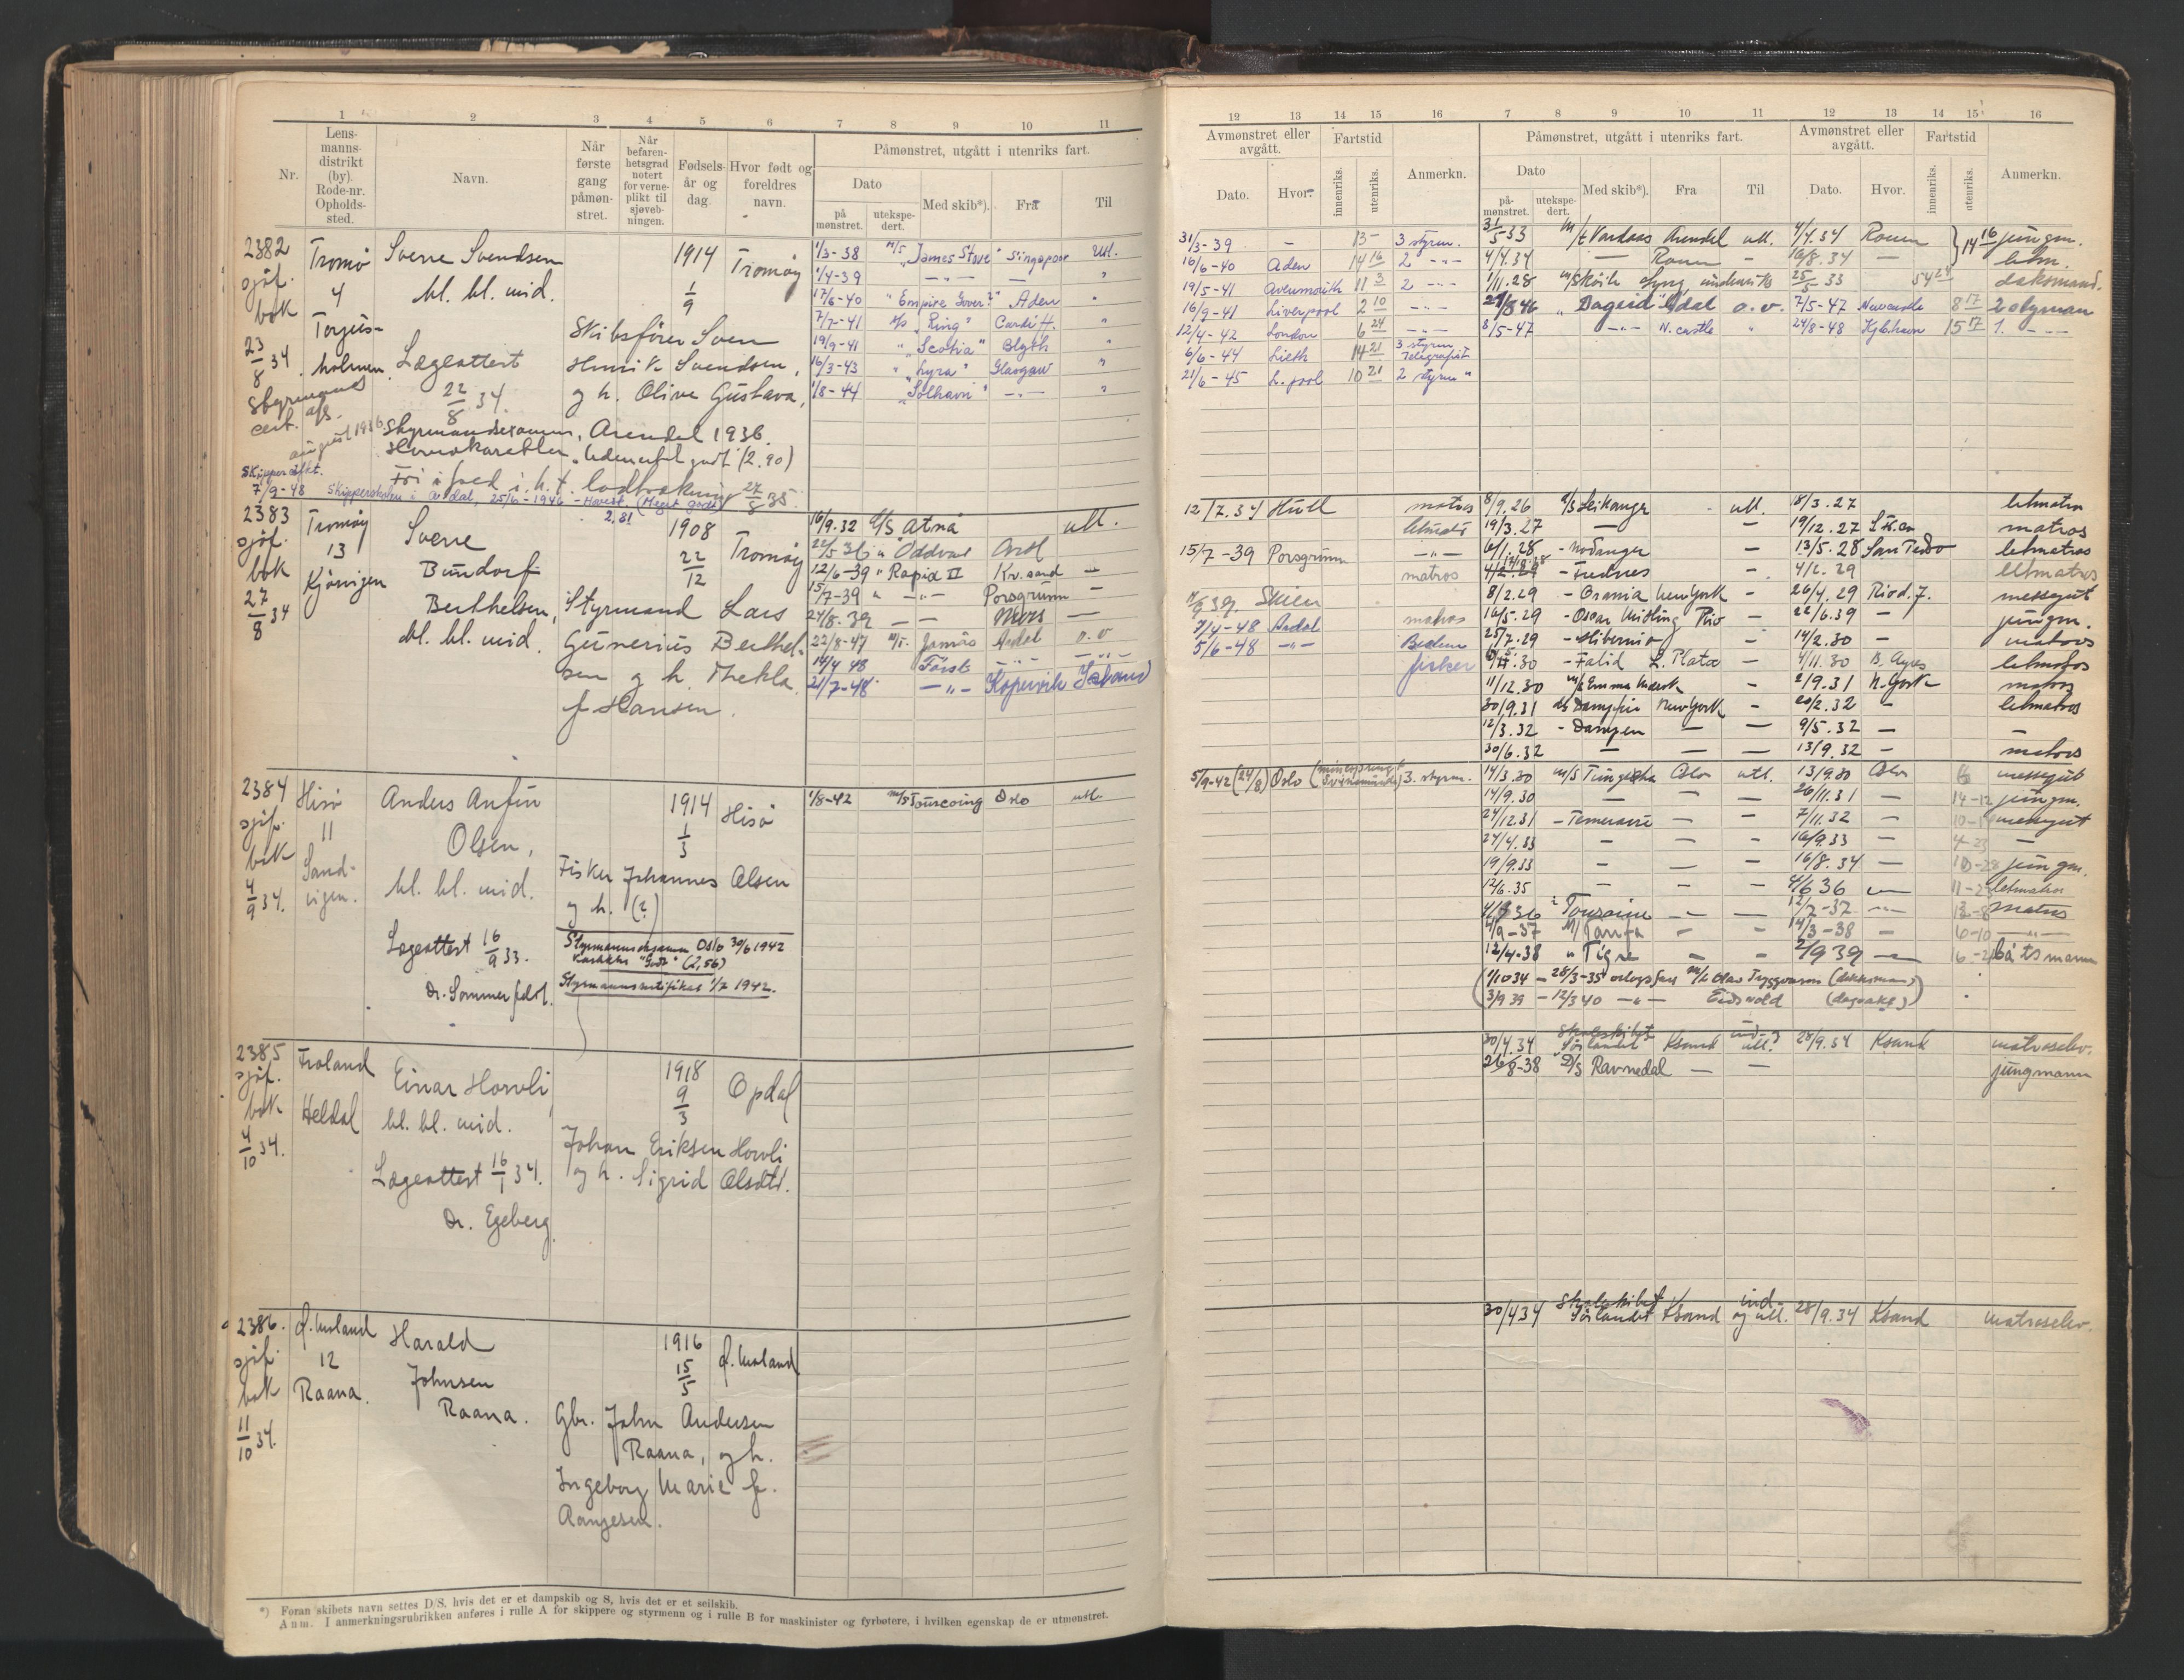 1 2 3 4 5 6 7 8 9 10 11
Nr. Lensmannsdistrikt (by). Rode-nr. Opholdssted. Navn. Når første gang påmønstret. Når befarenhetsgrad notert for verneplikt til sjøvebningen. Fødselsår og dag. Hvor født og foreldres navn. Påmønstret, utgått i utenriks fart.
Dato Med skib*). Fra Til
på mønstret. utekspedert.
2382 Tromø Sverre Svendsen 1914 Tromøy 1/3-38 M/S "James Stove" Singapore Utl.
sjøf. 4 bl. bl. mid. 1/9 1/4-39 — — "
bok Torjus- 17/6-40 " Aden "
23/8 34 holmen Skibsfører Sven 7/7-41 "Ring" Cardiff. "
Lægeattest Henrik Svendsen, 19/9-41 "Scotia" Blyth "
22/8 34. g h. Olive Gustava, 16/3-43 "Lyra" Glasgow "
1/8-44 "Solhavn" —"— "
Styrmandseksamen, Arendal 1936.
Hovedkarakter (2.90)
27/8 35
7/9-48 Skipperskolen i Ardal, 25/6-1946 - (Meget godt) 2,81
2383 Tromøy Sverre 1908 Tromøy 16/9.32 D/S Atna utl.
sjøf. 13 Bundorf 22/12 22/5 36 " Oddvar
bok Kjørvigen Berthelsen, 12/6-39 " Rapid II Kr.sand —
27/8 34 bl. bl. mid. Styrmand Lars 15/7-39 " —"— Porsgrunn —
Gunerius Berthel- 24/8.39 — — —
sen g h. Thekla 22/8-47 M/S. Ardal o.v
f Hansen. 16/4 48
21/7-48 —"— Kopervik Island
2384 Hisø Anders Anfin 1914 Hisø 1/8-42 M/S Tourcoing Oslo utl.
sjøf. 11 Olsen, 1/3
bok Sand- bl. bl. mid. Fisker Johannes Olsen
4/9 34. vigen. g h. (?)
Lægeattest 16/9 33. Styrmannseksamen Oslo 30/6 1942
Karakter "Godt" (2,56)
Dr. Sommerfeldt. Styrmannssertifikat 1/7 1942.
2385 Froland Einar Horvli 1918 Opdal
sjøf. bl. bl. mid. 9/3
bok Heldal Johan Eriksen Horvli
4/10 34. Lægeattest 16/1 34. og h. Sigrid Olsdtr.
Dr. Egeberg
2386. Harald 1916
sjøf. 12 Johnsen 15/5
bok Raana. Raana. Gbr. John Andersen
11/10 34. Raana, og h.
Ingeborg Marie f.
*) Foran skibets navn settes D/S, hvis det er et dampskib og S, hvis det er et seilskib.
Anm. I anmerkningsrubrikken anføres i rulle A for skippere og styrmenn og i rulle B for maskinister og fyrbøtere, i hvilken egenskap de er utmønstret.
12 13 14 15 16 7 8 9 10 11 12 13 14 15 16
Avmønstret eller avgått. Fartstid Anmerkn. Påmønstret, utgått i utenriks fart. Avmønstret eller avgått. Fartstid Anmerkn.
Dato. Hvor. innenriks. utenriks. Dato Med skib*). Fra Til Dato. Hvor. innenriks. utenriks.
påmønstret. utekspedert.
31/3-39 — 13- 3 styrm. 31/5 33 M/t Vardaas Arendal utl. 4/4.34 Rouen 14 16 jungm.
16/6-40 Aden 14 16 2 —"— 4/4.34 — Rouen — 16/8.34 — letm.
19/5-41 Avenmouth 11 3 2 —"— 1/11.28 25/5 33 54 24 deksmand.
16/9-41 Liverpool 2 10 —"— "Dagrid" o.v. 7/5-47 Newcastle 8 17 2 styrman
12/4-42 London 6 24 —"— 8/5-47 —"— N.castle " 24/8-48 Kjb.havn 15 17 1. —"—
6/6-44 Lieth 14 21 3 styrm Telegrafist
21/6-45 L.pool 10 21 2 styrm "
12/7.34 Hull matros 8/9.26 D/S Leikanger utl. 18/3.27 letmatr.
19/3.27 — — 19/12.27 matros
15/7-39 Porsgrunn —"— 6/1.28 - Nordanger — 13/5.28 San Pedro letmatros
matros - — 4/2.29 letmatros
39. Skien 8/2.29 - Crania New York — 26/4.29 Rio d. J. messegut
7/4-48 Ardal matros 16/5.29 - Oscar Midling Rio — 22/6.39 — jungm.
5/6-48 —"— 25/7.29 - Hibernia — 14/2.30 — matros
fisker - L. Plata — 4/11.30 B. Ayres letmatros
11/12.30 M/S Emma Mærsk — 2/9.31 N. York matros
30/9.31 New York — 20/2.32 — letmatros
12/3.32 - — — 9/5.32 —
30/6.32 — — — 13/9.32 — matros
5/9-42 (24/8) Oslo (minesprengt) 3. styrm. 14/3.30 M/S Oslo utl. 13/9.30 Oslo 6 messegut
14/9.30 — — — 26/11.31 — 14-12 jungm.
24/12.31 - Temeraire — — 7/11.32 — messegut
27/4.33 — — — 16/9.33 — 4-23 —
19/9.33 — — — 16/8.34 — 10-28 jungm.
12/6.35 — — — 4/6 36 letmatros
" Touraine — — 12/7-37 —"— matros
4/9-37 M/ Tarifa — — 14/3-38 — 6-10 —"—
12/4-38 " Tigre — — 2/9 39 — båtsmann
(1/10 34 - 28/3-35 Olav Tryggvason (dekksmann)
3/9 39 - 12/3 40 —"— Eidsvold )
30/4.34 Skoleskibet "Sørlandet" Ksand ind- og utl. 28/9.34 Ksand matroselev.
26/8-38 D/S Ravnedal — — jungmann
30/4 34 Skoleskibet Sørlandet Ksand ind- og utl. 28/9.34 Ksand matroselev.